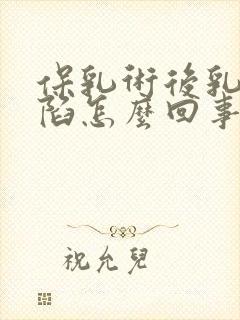 保乳術後乳
陷怎麼回事
祝允兒